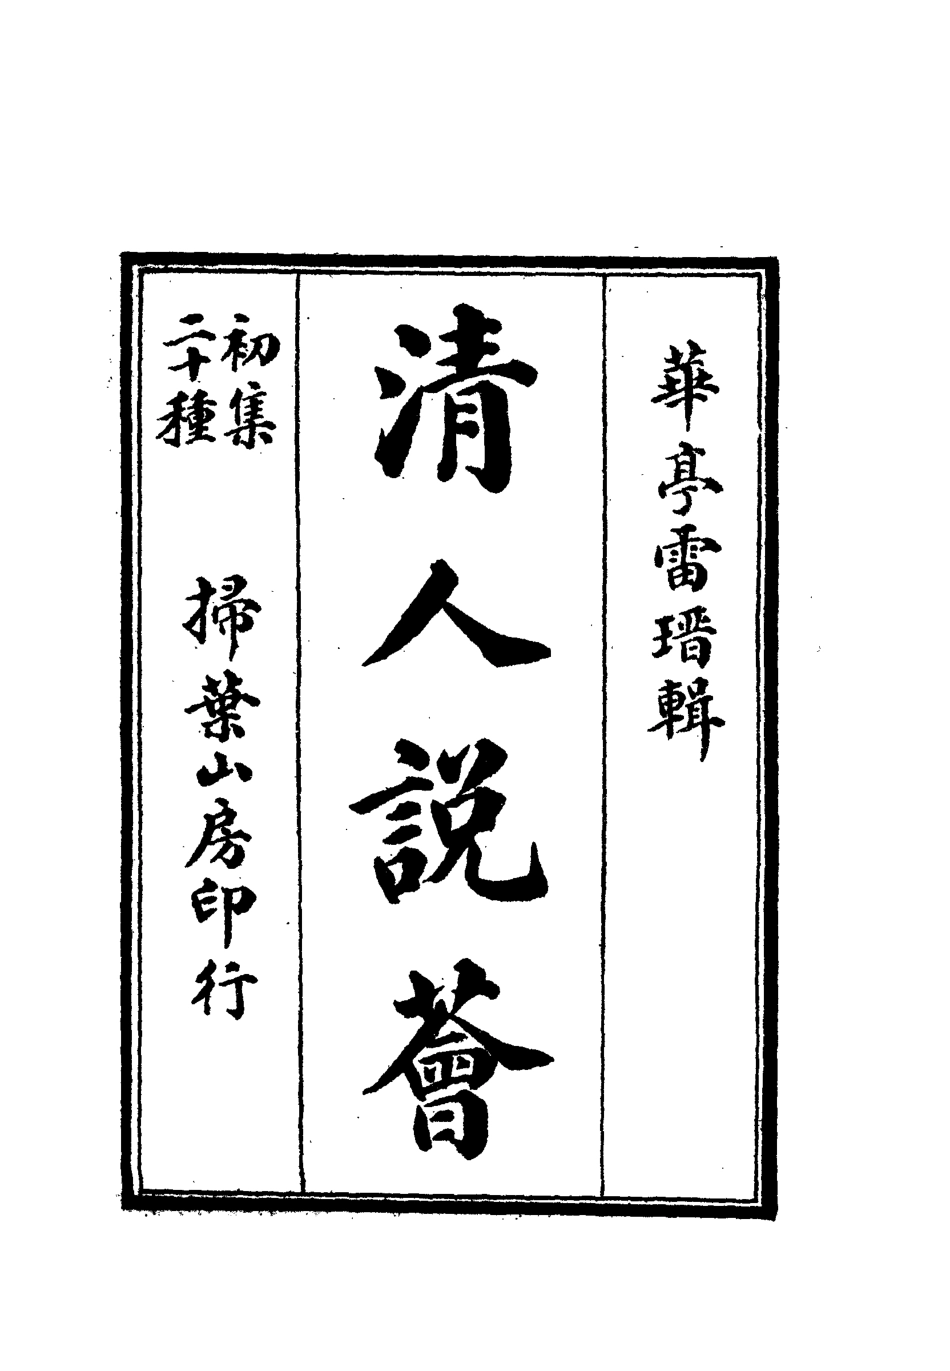 華亭雷瑨輯
清人説薈
初集
二十種
掃葉山房印行